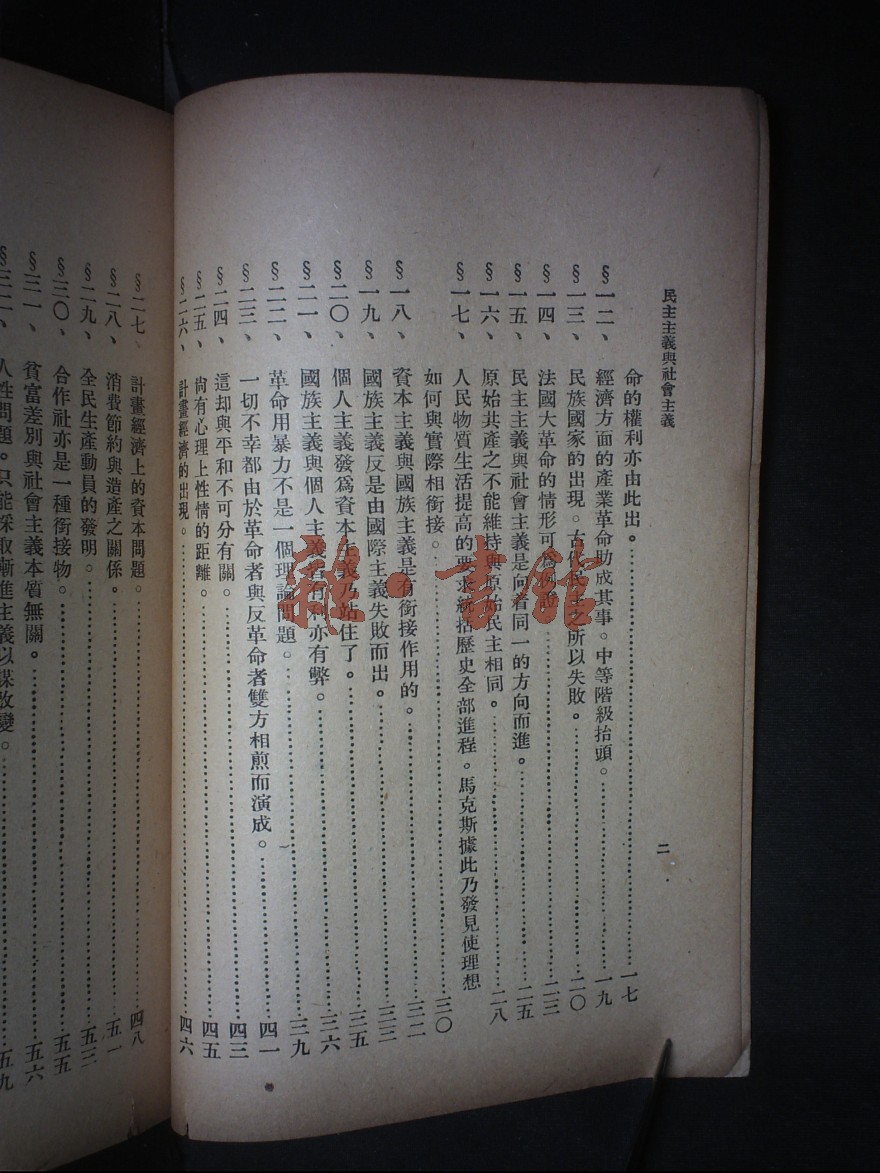 民主主義與社會主義
二
命的權利亦由此出。一七
§一二、經濟方面的產業革命助成其事。中等階級抬頭。一九
§一三、民族國家的出現。古代民主之所以失敗。二〇
§一四、法國大革命的情形可爲例證。二三
§一五、民主主義與社會主義是向着同一的方向而進。二五
§一六、原始共產之不能維持與原始民主相同。二八
§一七、人民物質生活提高的要求統括歷史全部進程。馬克斯據此乃發見使理想
如何與實際相銜接。三〇
§一八、資本主義與國族主義是有銜接作用的。三二
§一九、國族主義反是由國際主義失敗而出。三三
§二〇、個人主義發爲資本主義乃站住了。三五
§二一、國族主義與個人主義有利亦有弊。三六
§二二、革命用暴力不是一個理論問題。三九
§二三、一切不幸都由於革命者與反革命者雙方相煎而演成。四一
§二四、這却與平和不可分有關。四三
§二五、尚有心理上性情的距離。四五
§二六、計畫經濟的出現。四六
§二七、計畫經濟上的資本問題。四八
§二八、消費節約與造產之關係。五一
§二九、全民生產動員的發明。五三
§三〇、合作社亦是一種銜接物。五五
§三一、貧富差別與社會主義本質無關。五六
§三二、人性問題。只能採取漸進主義以謀改變。五九
雜·書館